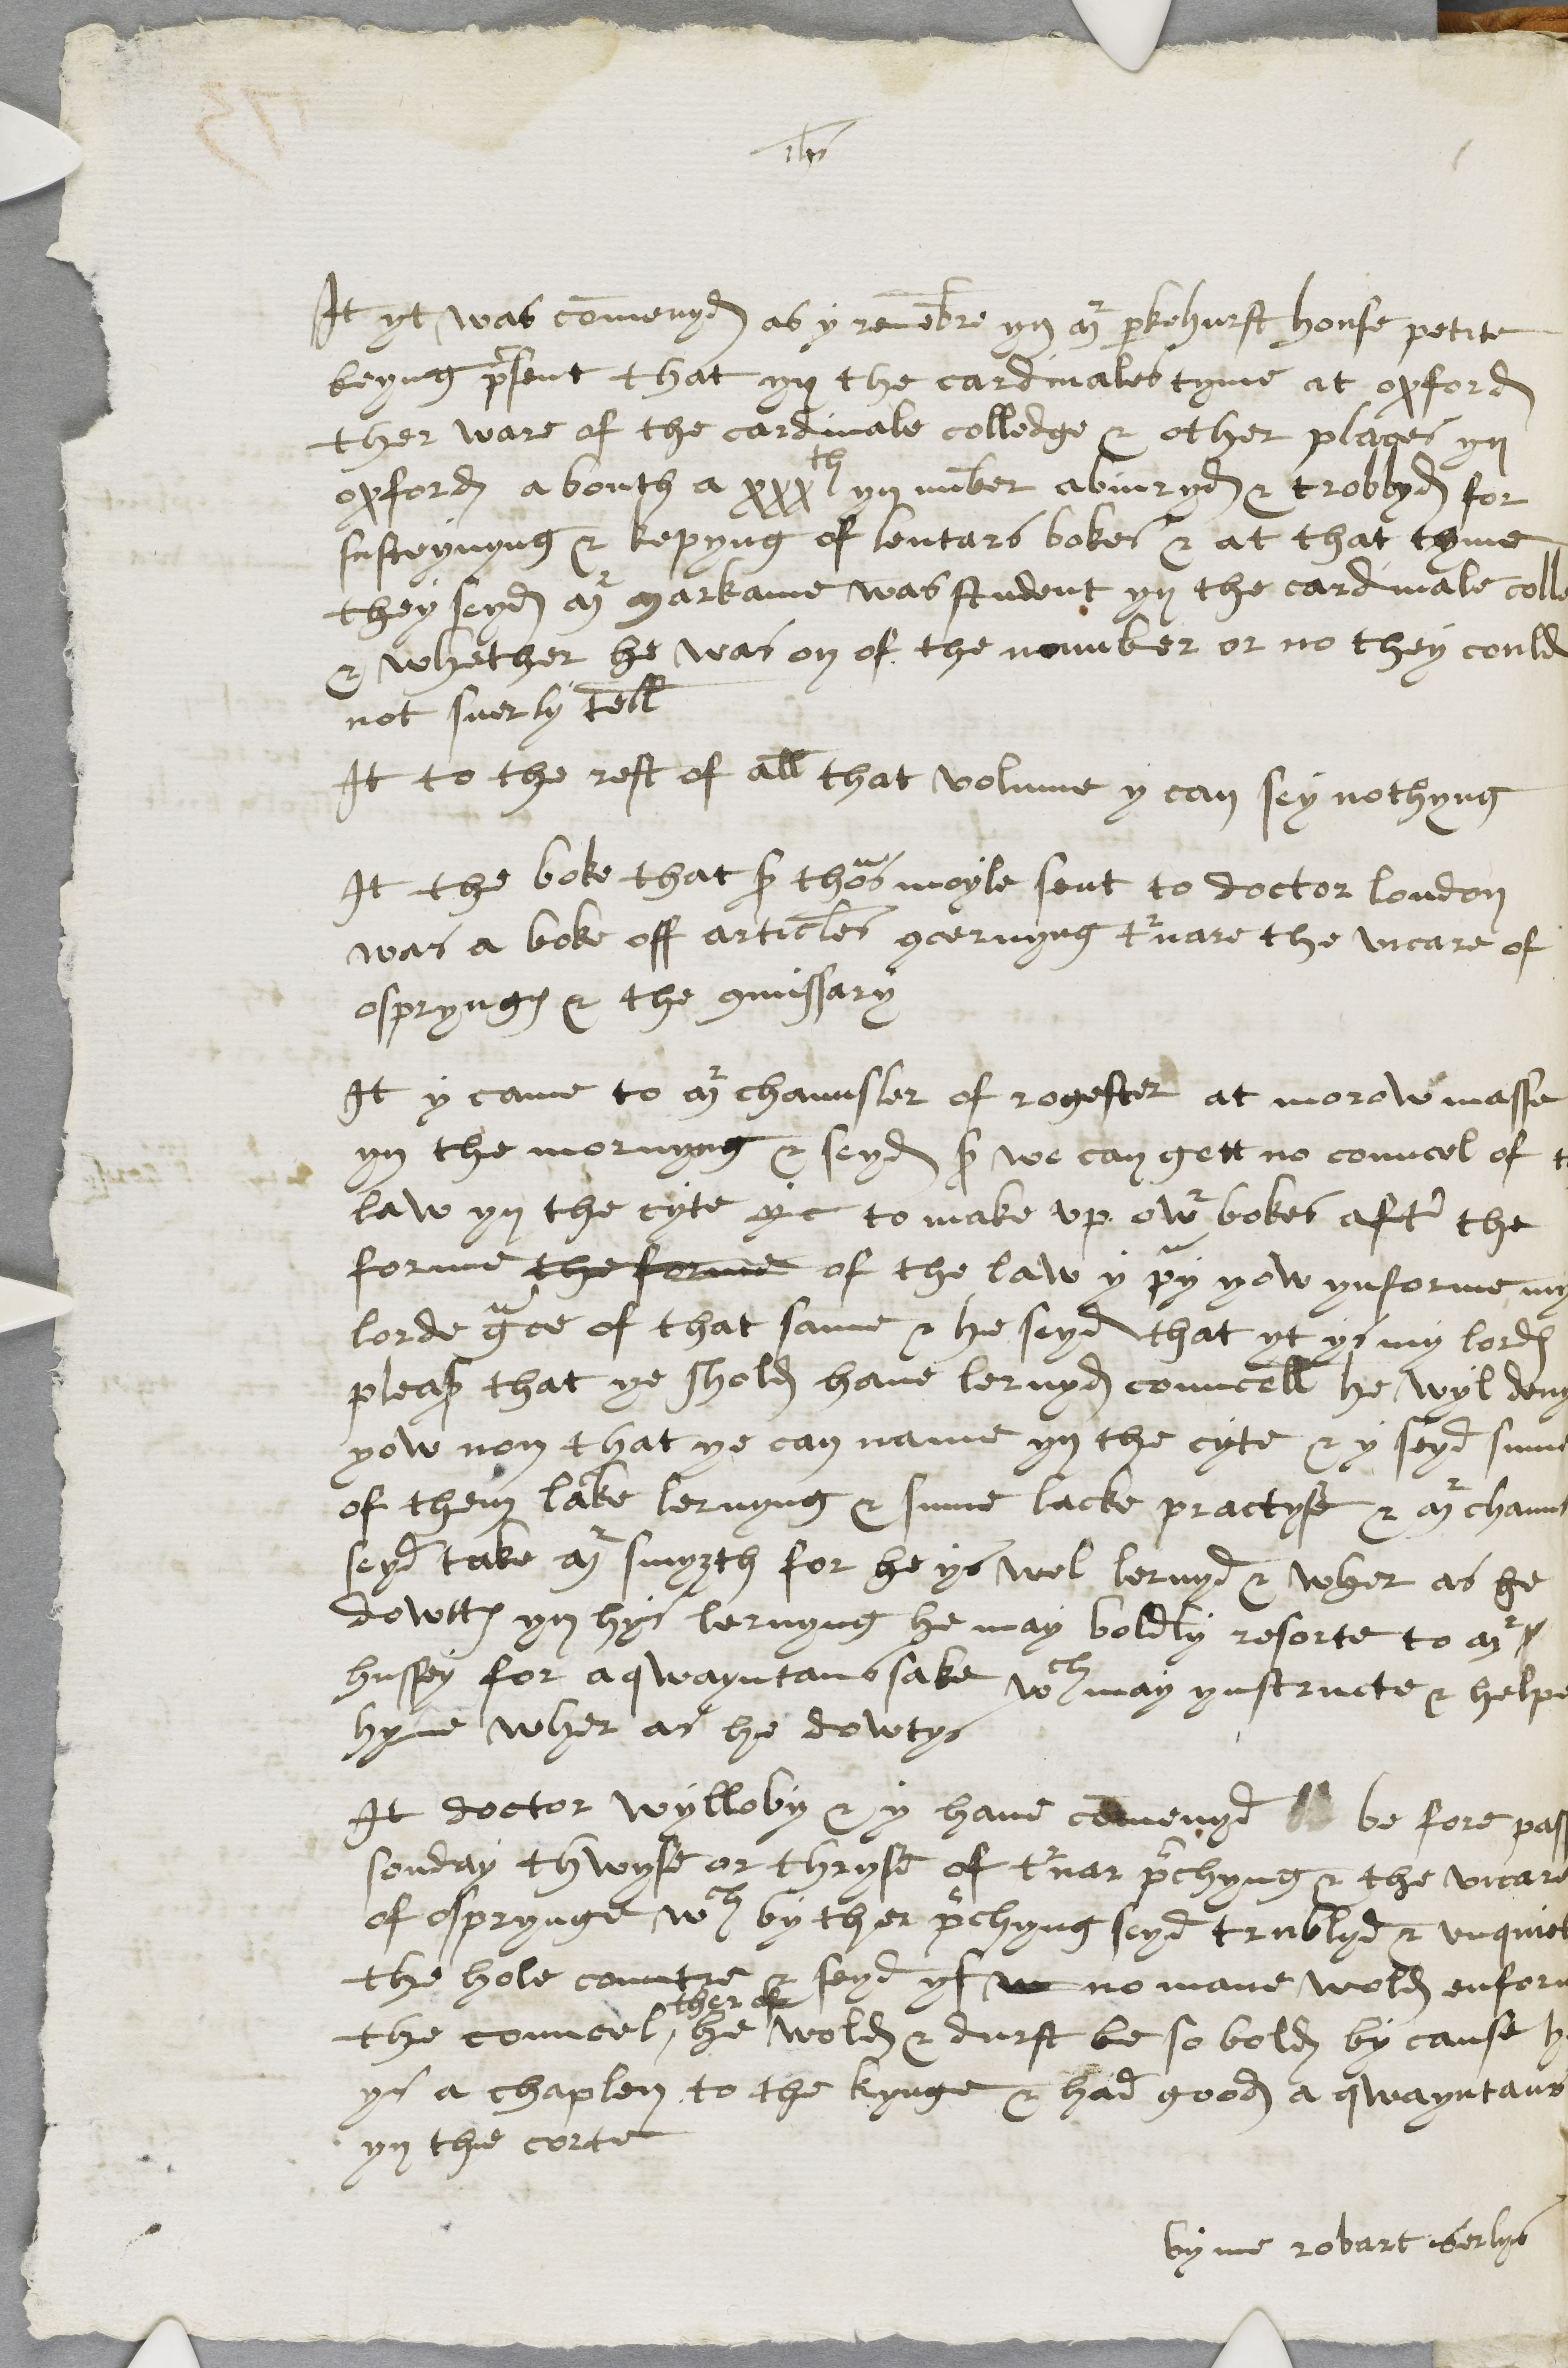 ihs
It yt was comenyd as y remebre yn mr pkehurst house petite
beyng psent that yn the cardinales tyme at oxford
ther ware of the cardinale colledge & other places yn
oxford a bouth a xxxth yn nuber abiuryd & trobbyd for
susteynyng & kepyng of lentars bokes & at that tyme
they seyd mr markame was student yn the cardinale colle
& whether he was on of the nounber or no they could
not suerly tell
It to the rest of all that volume y can sey nothyng
It the boke that sr thomas moyle sent to doctor london
was a boke off articles 9cernyng trnare the vicare of
ospryng & the 9missary
It y came to mr chaunsler of rogester at morow masse
yn the mornyng & seyd sr we can gett no councel of t
law yn the cyte to make vp owr bokes aftr the
forme the forme of the law y pay yow ynforme my
lorde grace of that same & he seyd that yt ys my lordes
pleasr that ye shold haue lernyd councell he wyl deny
yow non that ye can name yn the cyte & y seyd sume
of them lake lernyng & sume lacke practyse & mr chauns
seyd take mr smyzth for he ys wel lernyd & wher as he
dowttes yn hys lernyng he may boldly resorte to mr
hussey for aqwayntans sake wch may ynstructe & helpe
hyme wher as he dowtys
It doctor wylloby & y haue comenyd be fore pass
sonday thwyse or thryse of trnar prchyng & the vicare
of osprynge wch by ther prchyng seyd trublyd & vnquiet
the hole countre & seyd yf no mane wold enform
the councel ther of he wold & durst be so bold by cause h
ys a chaplen to the kynge & had good a qwayntans
yn the corte
by me robart serlys
173